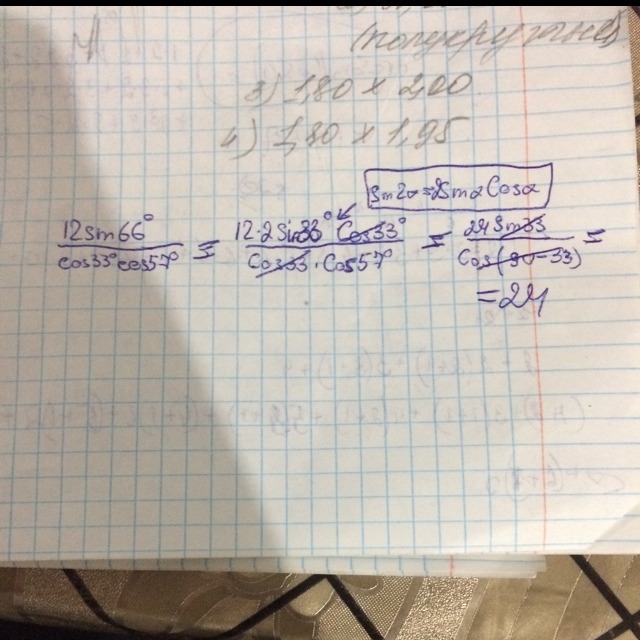 3) 1,80 x 2,00
4) 1,80 x 1,95
sin2α=2sinα Cosα
12sin66° / cos33°cos57° = 12·2Sin33° Cos33° / Cos33·Cos57° = 24Sin33 / Cos(90-33) =
=24